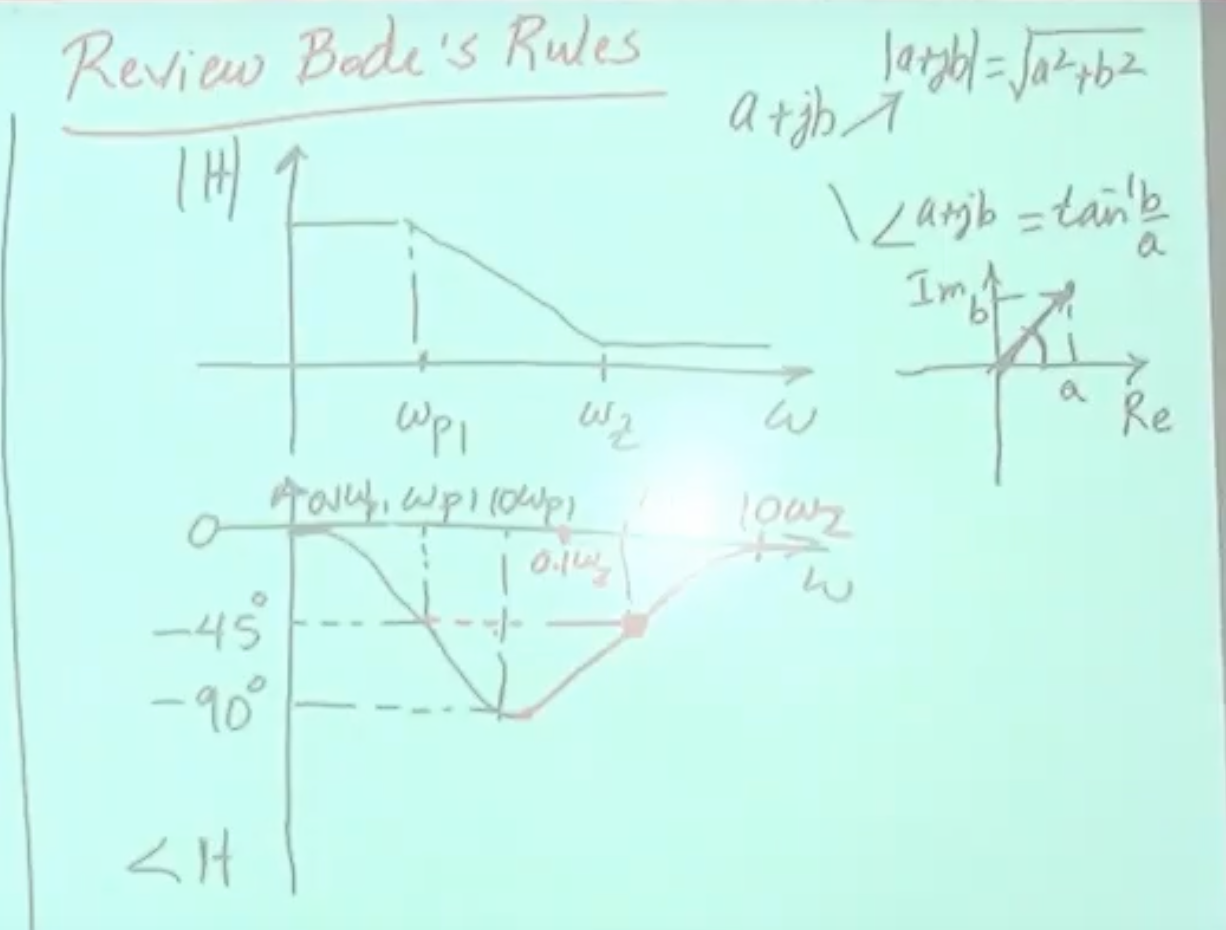 Review Bode's Rules
|a+jb| = √a²+b²
a+jb
∠a+jb = tan⁻¹ b/a
|H|
Im
b
a
Re
ωp1
ωz
ω
0
0.1ωp1
ωp1
10ωp1
0.1ωz
10ωz
ω
-45°
-90°
∠H